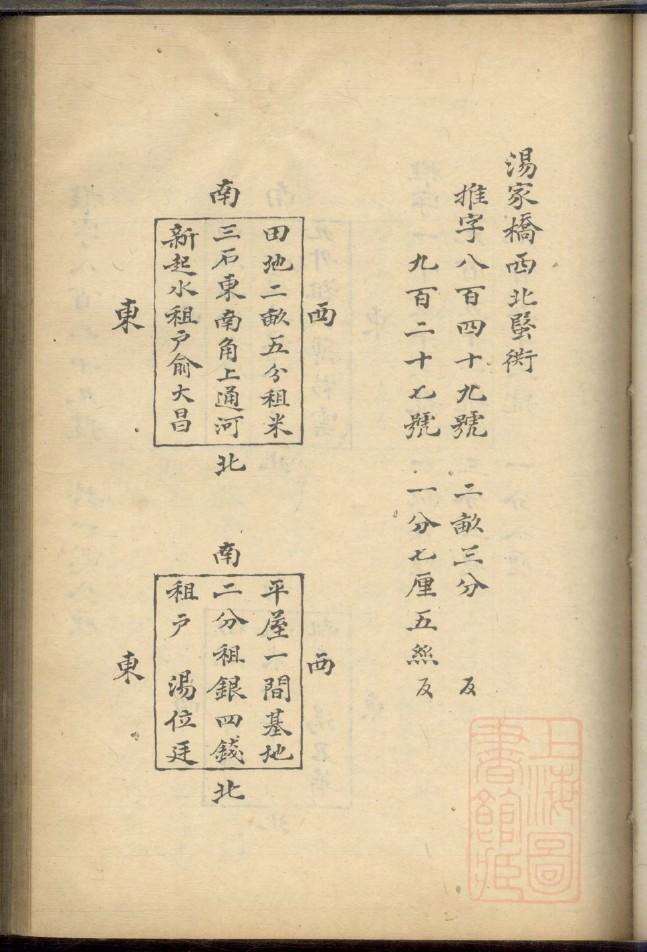 湯家橋西北蜑衖
推字八百四十九號 二畝三分 反
九百二十七號 一分七厘五絲 反
南
西
田地二畝五分租米
三石東南角上通河
新起水租戶俞大昌
東
北
南
西
平屋一間基地
二分租銀四錢
租戶 湯位廷
東
北
上海圖
書館藏